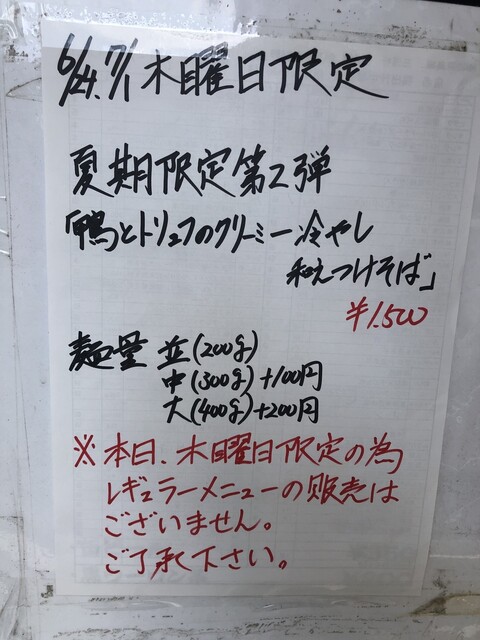 6/24.7/1 木曜日限定
夏期限定第2弾
「鴨とトリュフのクリーミー冷やし
和えつけそば」
¥1.500
麺量 並(200g)
中(300g)+100円
大(400g)+200円
※本日、木曜日限定の為
レギュラーメニューの販売は
ございません。
ご了承下さい。